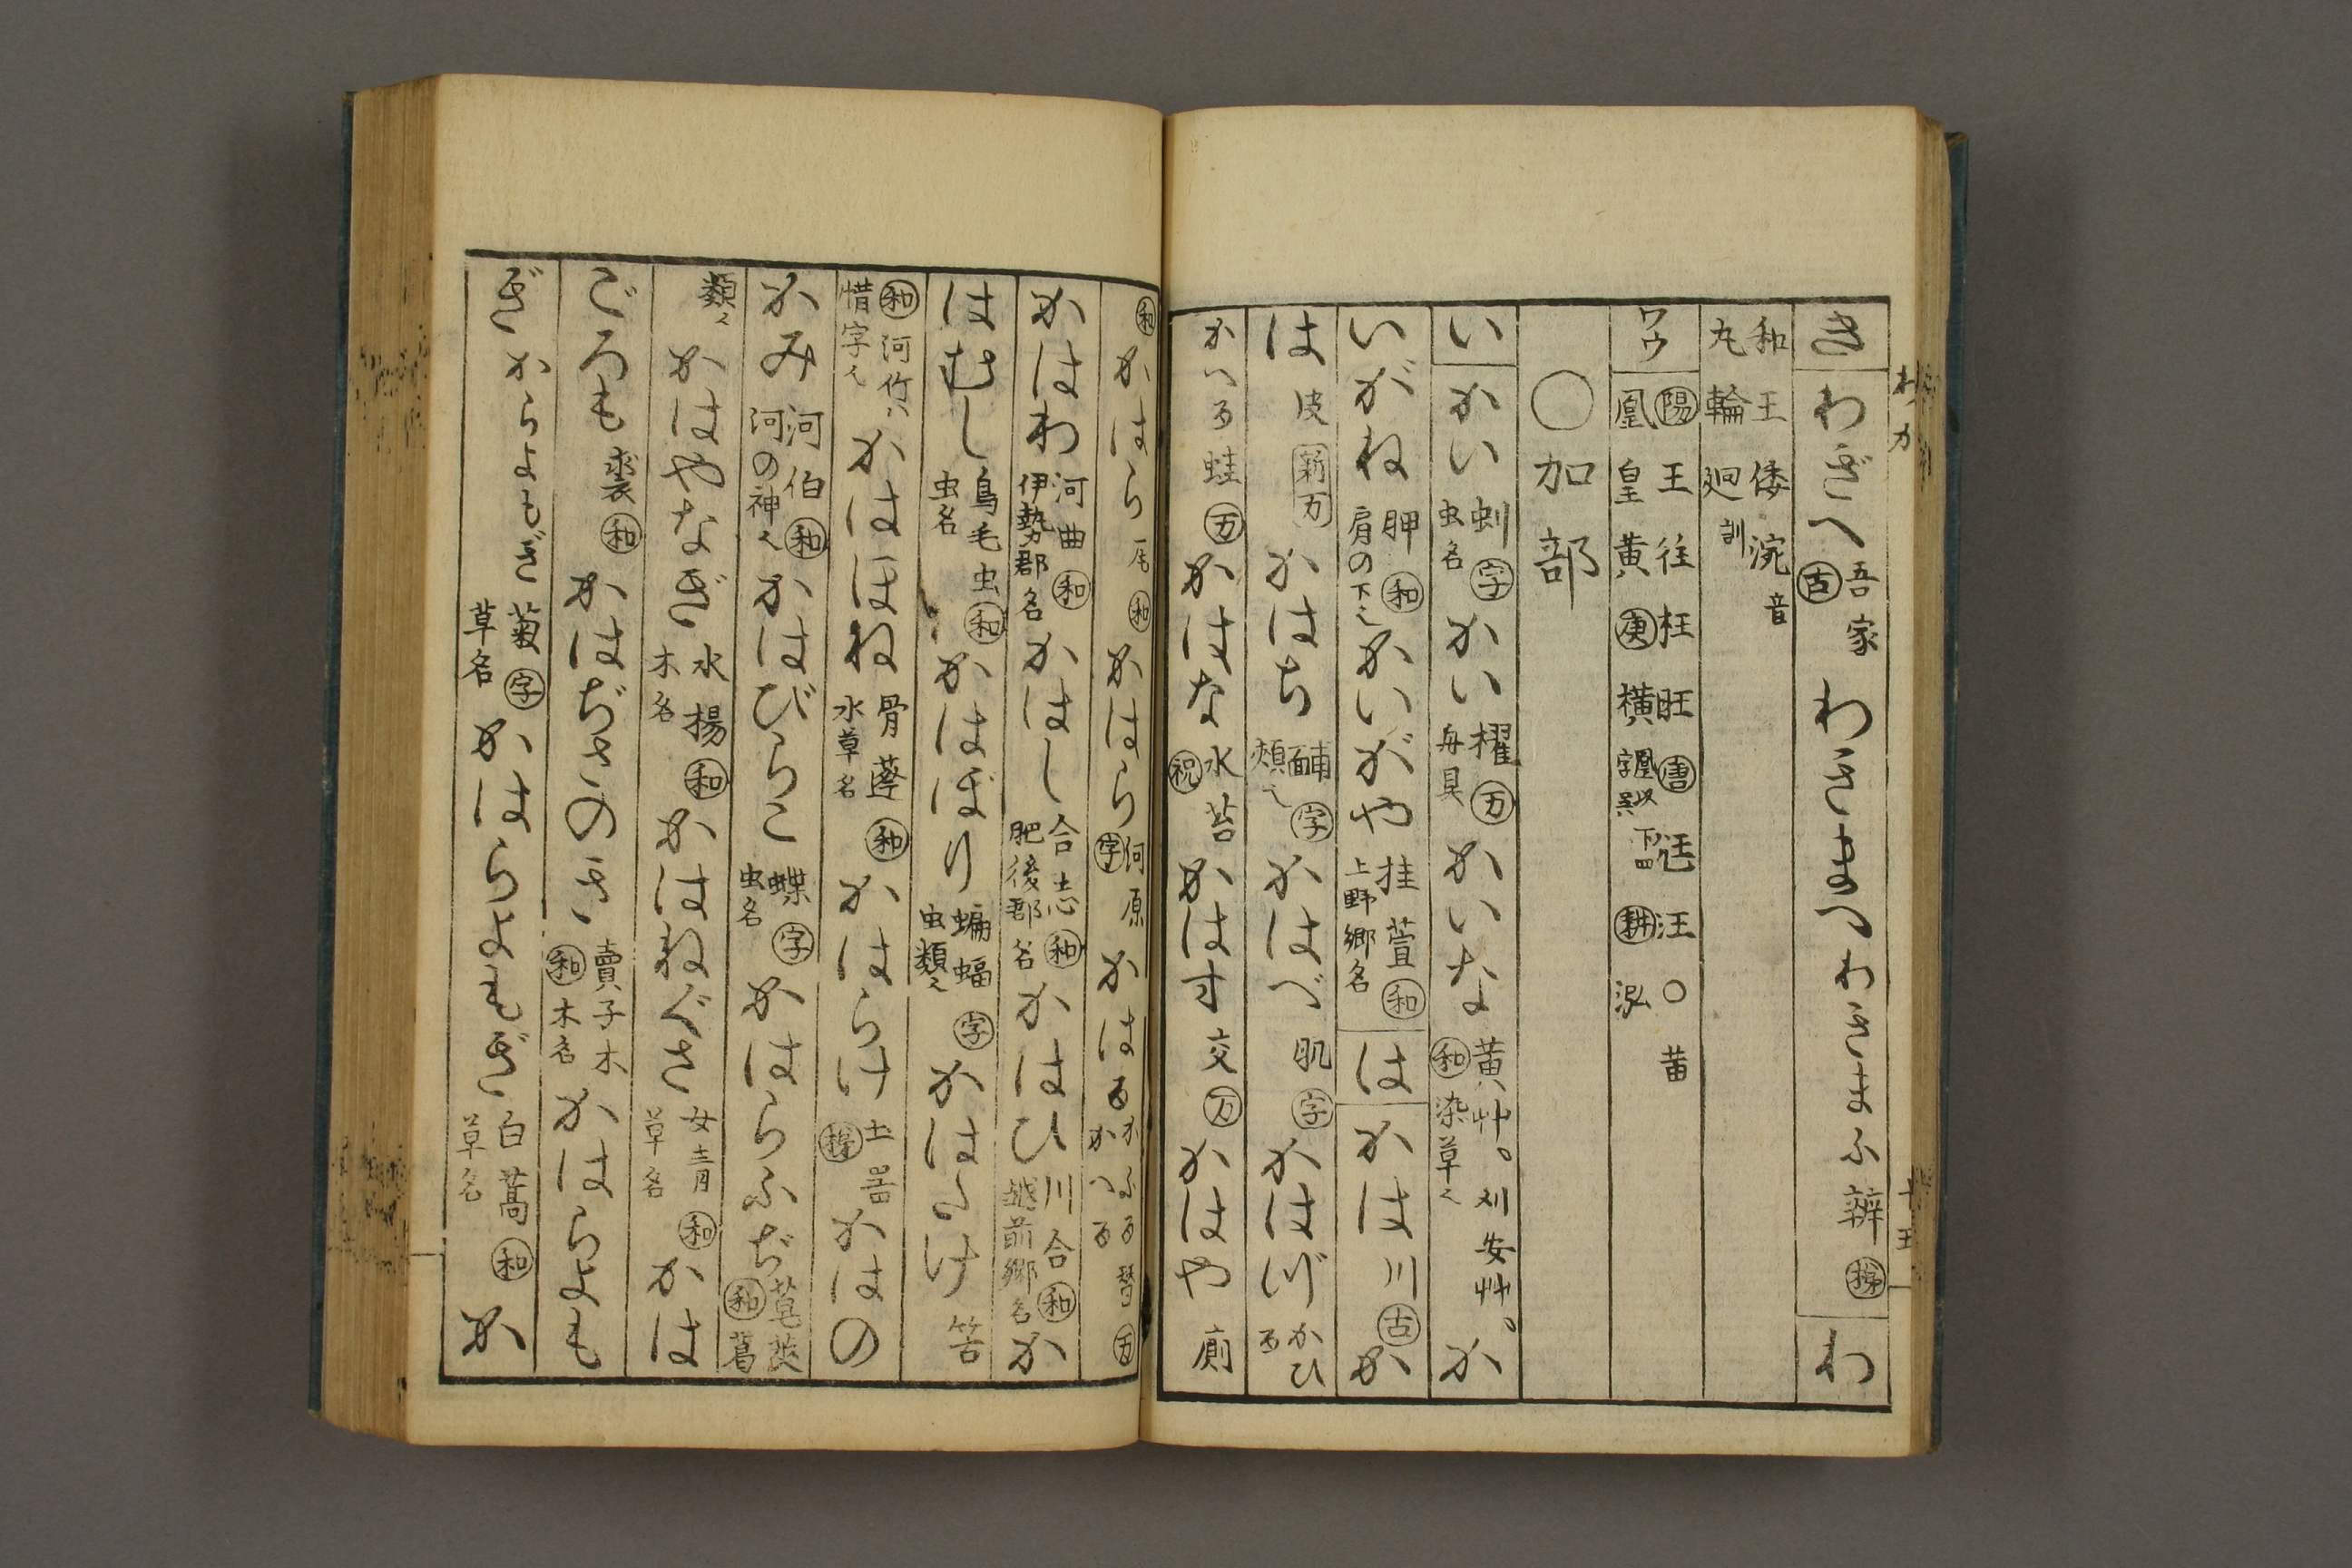 き わぎへ 吾家 古 わきまつ わきまふ 辨 わ
和 王 倭 涴 音
丸 輪 廻 訓
ワウ 陽 王 往 枉 旺 唐 汪 ○ 黄
凰 皇 黄 庚 横 耕 泓
○加部
い かい 蚓 字 虫名 かい 櫂 万 舟具 かいな 黄艸。刈安艸。 和 染草 か
いがね 胛 和 肩の下 かいがや 挂萱 和 上野郷名 は かは 川 古 か
は 皮 かはち 輔 字 頬 かはべ 肌 字 かはづ かひる
かへる 蛙 万 かはな 水苔 祝 かはす 交 万 かはや 廁
和 かはら 和 かはら 河原 字 かはる かふる かへる 替 万
かはわ 河曲 和 伊勢郡名 かはし 合志 和 肥後郡名 かはひ 川合 和 越前郷名 か
はむし 烏毛虫 和 虫名 かはぼり 蝙蝠 虫類 字 かはたけ 筈
和 河竹ハ 惜字 かはほね 骨蓬 和 水草名 かはらけ 土器 かはの
かみ 河伯 和 河の神 かはびらこ 蝶 字 虫名 かはらふぢ 皂莢 和 葛
類 かはやなぎ 水楊 和 木名 かはねぐさ 女青 和 草名 かは
ごろも 裘 和 かはぢさのき 賣子木 和 木名 かはらよも
ぎ からよもぎ 菊 字 草名 かはらよもぎ 白蒿 和 草名 か
わ カ